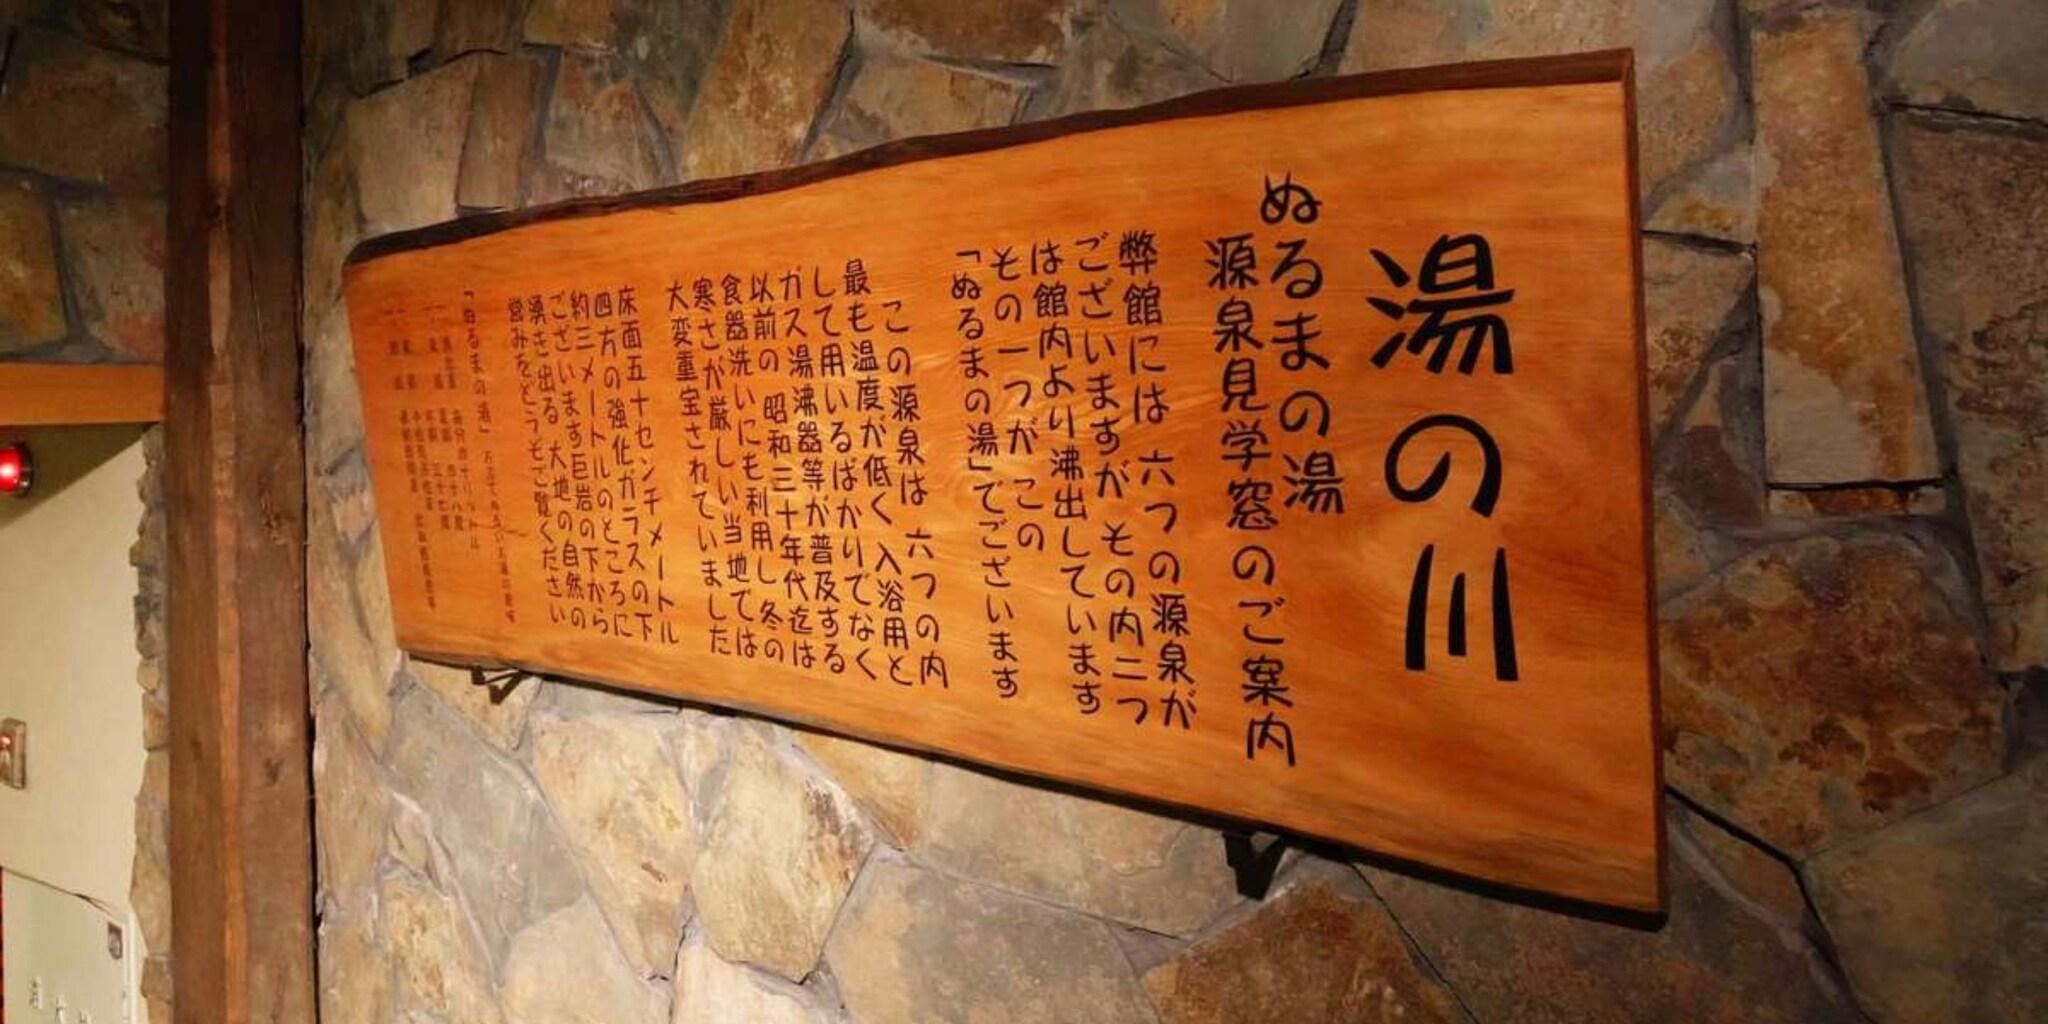 湯の川
ぬるまの湯
源泉見学窓のご案内
弊館には 六つの源泉が
ございますが その内二つ
は館内より沸出しています
その一つが この
「ぬるまの湯」でございます
この源泉は 六つの内
最も温度が低く 入浴用と
して用いるばかりでなく
ガス湯沸器等が普及する
以前の 昭和三十年代迄は
食器洗いにも利用し 冬の
寒さが厳しい当地では
大変重宝されていました
床面五十センチメートル下
四方の強化ガラスの下
約三メートルのところに
ございます巨岩の下から
湧き出る 大地の自然の
営みをどうぞご覧ください
「ぬるまの湯」